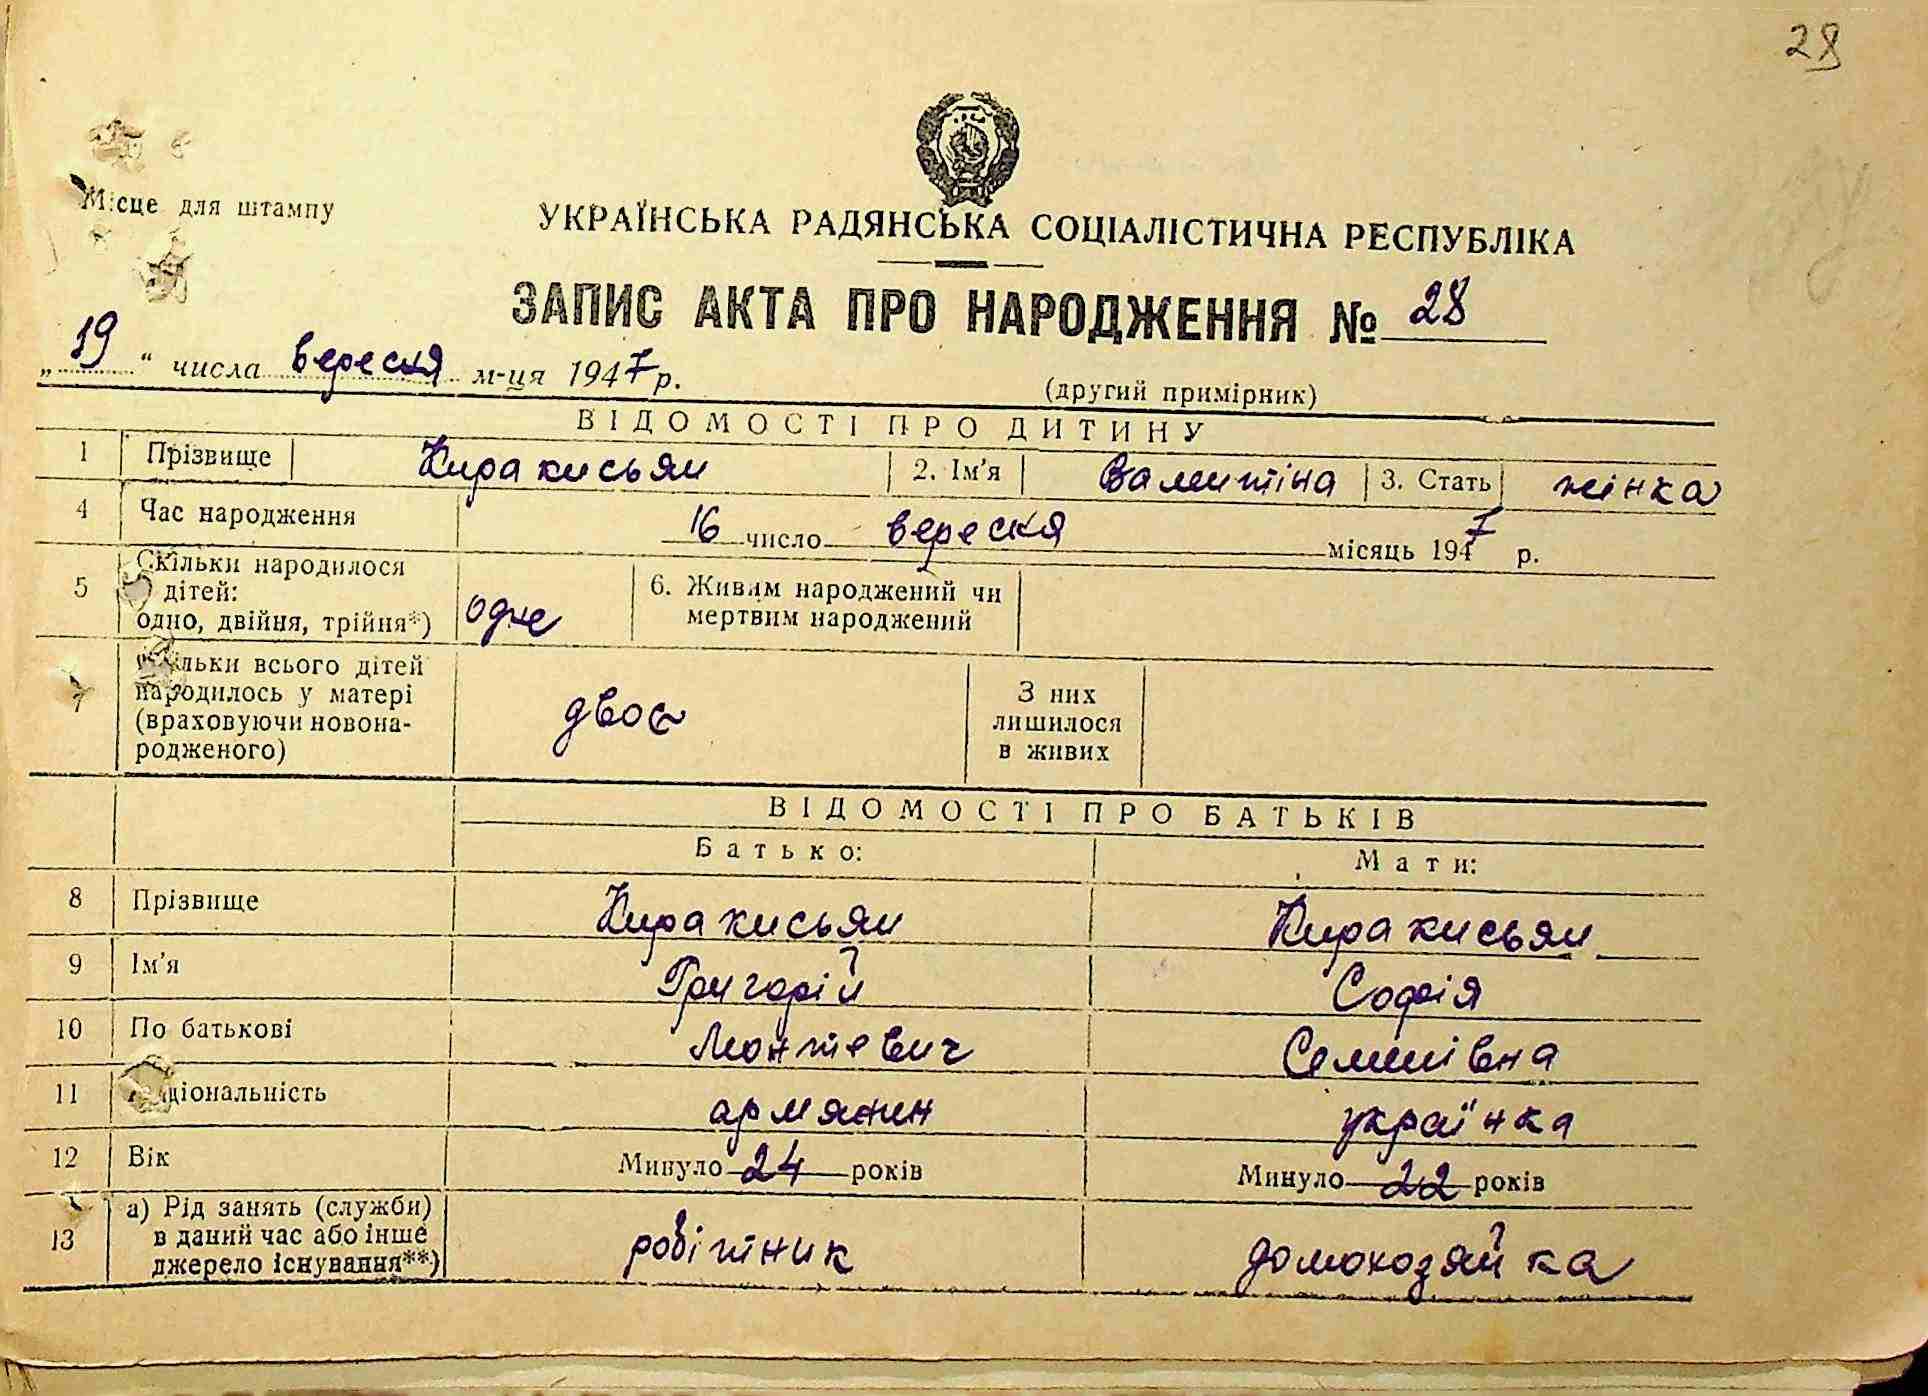 28
Місце для штампу
УКРАЇНСЬКА РАДЯНСЬКА СОЦІАЛІСТИЧНА РЕСПУБЛІКА
ЗАПИС АКТА ПРО НАРОДЖЕННЯ № 28
„ 19 “ числа вересня м-ця 1947 р.
(другий примірник)
ВІДОМОСТІ ПРО ДИТИНУ
1 Прізвище Киракисьян 2. Ім'я Валентіна 3. Стать жінка
4 Час народження 16 число вересня місяць 1947 р.
5 Скільки народилося
дітей:
одно, двійня, трійня*) одне 6. Живим народжений чи
мертвим народжений
7 Скільки всього дітей
народилось у матері
(враховуючи новона-
родженого) двоє З них
лишилося
в живих
ВІДОМОСТІ ПРО БАТЬКІВ
Батько: Мати:
8 Прізвище Киракисьян Киракисьян
9 Ім'я Григорій Софія
10 По батькові Монтевич Семенівна
11 Національність армянин українка
12 Вік Минуло 24 років Минуло 22 років
13 а) Рід занять (служби)
в даний час або інше
джерело існування**) робітник домохозяйка